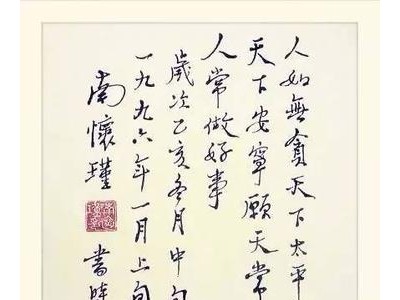 人如無貪天下太平
天下安寧願天常
人常做好事
歲次乙亥冬月中旬
一九九六年一月上旬
南懷瑾
書時